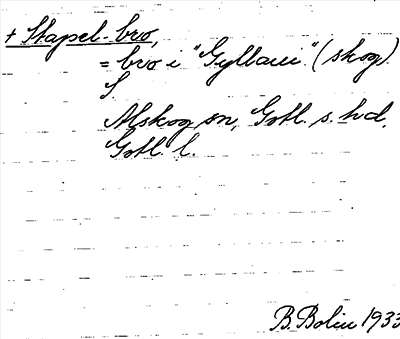 + Stapel-bro,
= bro i "Gyllaui" (skog).
S
Alskog sn, Gotl. s. hd.
Gotl. l.
B. Bolin 1933